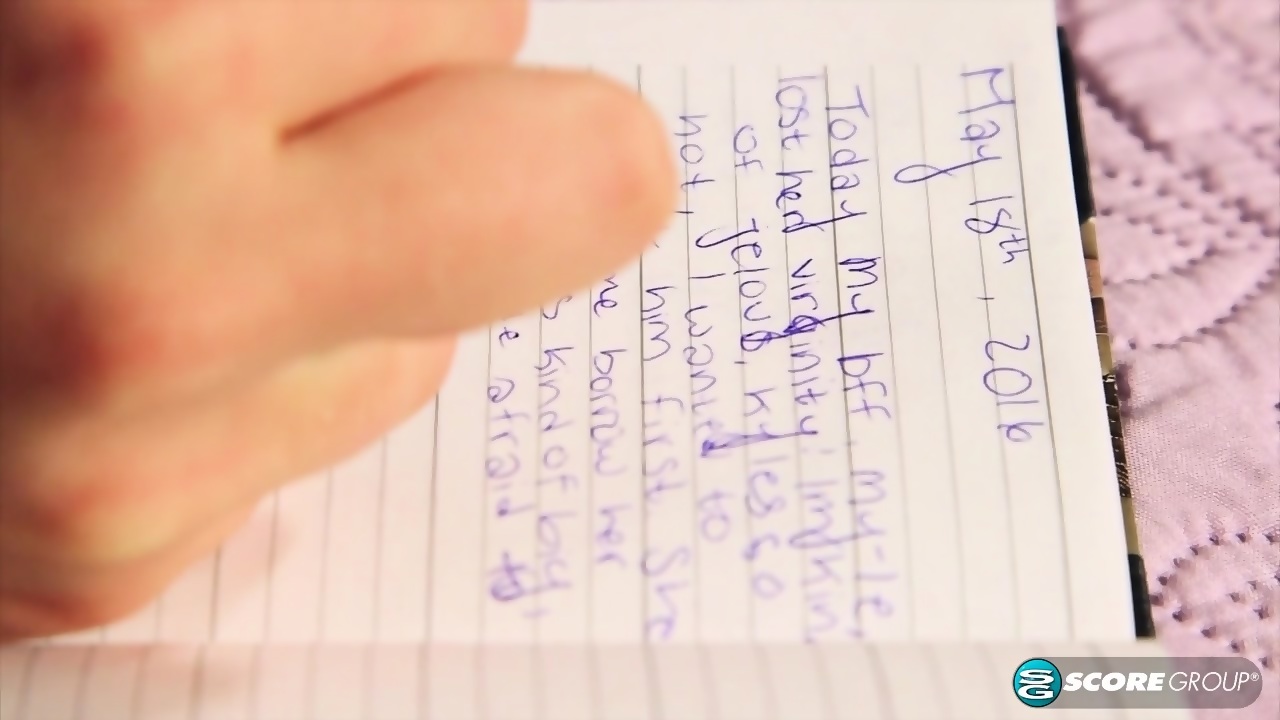 May 18th, 2016
Today my bff, my-le,
lost her virginity! Im kin
of jelous, kyles so
hot, I wanted to
him first. She
me borrow her
s kind of big,
afraid to
SCORE GROUP®